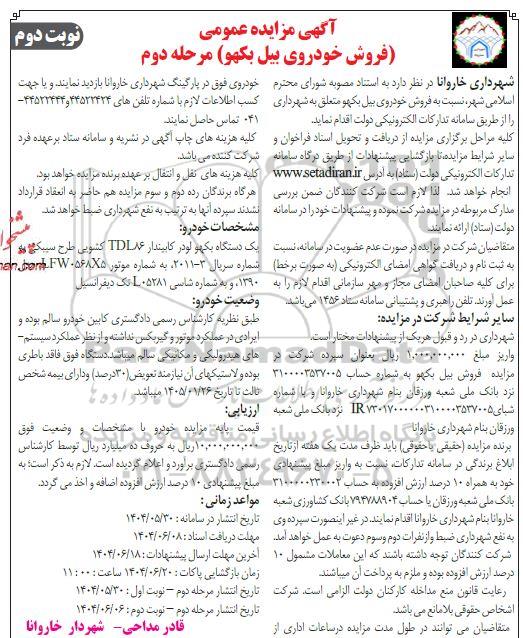 آگهی مزایده عمومی
(فروش خودروی بیل بکهو) مرحله دوم
نوبت دوم
شهرداری خاروانا در نظر دارد به استناد مصوبه شورای محترم
اسلامی شهر، نسبت به فروش خودروی بیل بکهو متعلق به شهرداری
را از طریق سامانه تدارکات الکترونیکی دولت اقدام نماید.
کلیه مراحل برگزاری مزایده از دریافت و تحویل اسناد فراخوان و
سایر شرایط مزایده تا بازگشایی پیشنهادات از طریق درگاه سامانه
تدارکات الکترونیکی دولت (ستاد) به آدرس www.setadiran.ir
انجام خواهد شد. لذا لازم است شرکت کنندگان ضمن بررسی
مدارک مربوطه در مزایده شرکت نموده و پیشنهادات خود را در سامانه
دولت (ستاد) ارائه نمایند.
متقاضیان شرکت در مزایده در صورت عدم عضویت در سامانه، نسبت
به ثبت نام و دریافت گواهی امضای الکترونیکی (به صورت برخط)
برای کلیه صاحبان امضای مجاز و مهر سازمانی اقدام لازم را به
عمل آورند. تلفن راهبری و پشتیبانی سامانه ستاد ۱۴۵۶ می‌باشد.
سایر شرایط شرکت در مزایده:
شهرداری در رد و قبول هریک از پیشنهادات مختار است.
واریز مبلغ ۱,۰۰۰,۰۰۰,۰۰۰ ریال بعنوان سپرده شرکت در
مزایده فروش بیل بکهو به شماره حساب ۳۱۰۰۰۰۳۵۳۷۰۰۵
نزد بانک ملی شعبه ورزقان بنام شهرداری خاروانا و یا شماره
شبای IR ۷۳۰۱۷۰۰۰۰۰۰۳۱۰۰۰۰۳۵۳۷۰۰۵ نزد بانک ملی شعبه
ورزقان بنام شهرداری خاروانا
برنده مزایده (حقیقی یاحقوقی) باید ظرف مدت یک هفته ازتاریخ
ابلاغ برندگی در سامانه تدارکات، نسبت به واریز مبلغ پیشنهادی
خود به همراه ۱۰ درصد ارزش افزوده به حساب ۳۱۰۰۰۰۰۲۳۰۰۰۲
بانک ملی شعبه ورزقان یا حساب ۷۹۴۷۸۸۹۰۴ بانک کشاورزی شعبه
خاروانا بنام شهرداری خاروانا اقدام نمایند. در غیر اینصورت سپرده وی
به نفع شهرداری ضبط وازنفرات دوم وسوم دعوت به عمل خواهد آمد.
شرکت کنندگان توجه داشته باشند که این معاملات مشمول ۱۰
درصد ارزش افزوده بوده و ملزم به پرداخت آن میباشند.
رعایت قانون منع مداخله کارکنان دولت الزامی است. شرکت
اشخاص حقوقی بلامانع می باشد.
متقاضیان می توانند در طول مدت مزایده درساعات اداری از
خودروی فوق در پارگینگ شهرداری خاروانا بازدید نمایند. و یا جهت
کسب اطلاعات لازم با شماره تلفن های ۴۴۵۲۲۴۲۴و۴۴۵۲۲۴۴۴-
۰۴۱ تماس حاصل نمایند.
کلیه هزینه های چاپ آگهی در نشریه و سامانه ستاد برعهده فرد
شرکت کننده می باشد.
کلیه هزینه های نقل و انتقال بر عهده برنده مزایده خواهد بود.
هرگاه برندگان رده دوم و سوم مزایده هم حاضر به انعقاد قرارداد
نشدند سپرده آنها به ترتیب به نفع شهرداری ضبط خواهد شد.
مشخصات خودرو:
یک دستگاه بکهو لودر کابیندار TDL۸۶ کشویی طرح سیبکو به
شماره سریال ۳-۲۰۱۱، به شماره موتور LFW۰۵۶۸X۵
۱۳۹۰، و به شماره شاسی L۰۵۲۸۱ تک دیفرانسیل
وضعیت خودرو:
طبق نظریه کارشناس رسمی دادگستری کابین خودرو سالم بوده و
ایرادی در عملکرد موتور و گیربکس نداشته و از نظر عملکرد سیستم-
های هیدرولیکی و مکانیکی سالم میباشد.دستگاه فوق فاقد باطری
بوده و لاستیکهای آن نیازمند تعویض(۳۰درصد) ودارای بیمه شخص
ثالث تا تاریخ ۱۴۰۵/۰۱/۲۶ میباشد.
ارزیابی:
قیمت پایه مزایده خودرو با مشخصات و وضعیت فوق
۱۰,۰۰۰,۰۰۰,۰۰۰ریال به حروف ده میلیارد ریال توسط کارشناس
رسمی دادگستری برآورد و اعلام گردیده است. لازم به ذکر است: به
مبلغ پیشنهادی ۱۰ درصد ارزش افزوده اضافه و اخذ می گردد.
مواعد زمانی:
تاریخ انتشار در سامانه : ۱۴۰۴/۰۵/۳۰
مهلت دریافت اسناد : ۱۴۰۴/۰۶/۰۸
آخرین مهلت ارسال پیشنهادات : ۱۴۰۴/۰۶/۱۸
زمان بازگشایی پاکات : ۱۴۰۴/۰۶/۲۰ ساعت : ۱۱:۰۰
تاریخ انتشار مرحله دوم – نوبت اول : ۱۴۰۴/۰۵/۳۰
تاریخ انتشار مرحله دوم – نوبت دوم : ۱۴۰۴/۰۶/۰۶
قادر مداحی- شهردار خاروانا